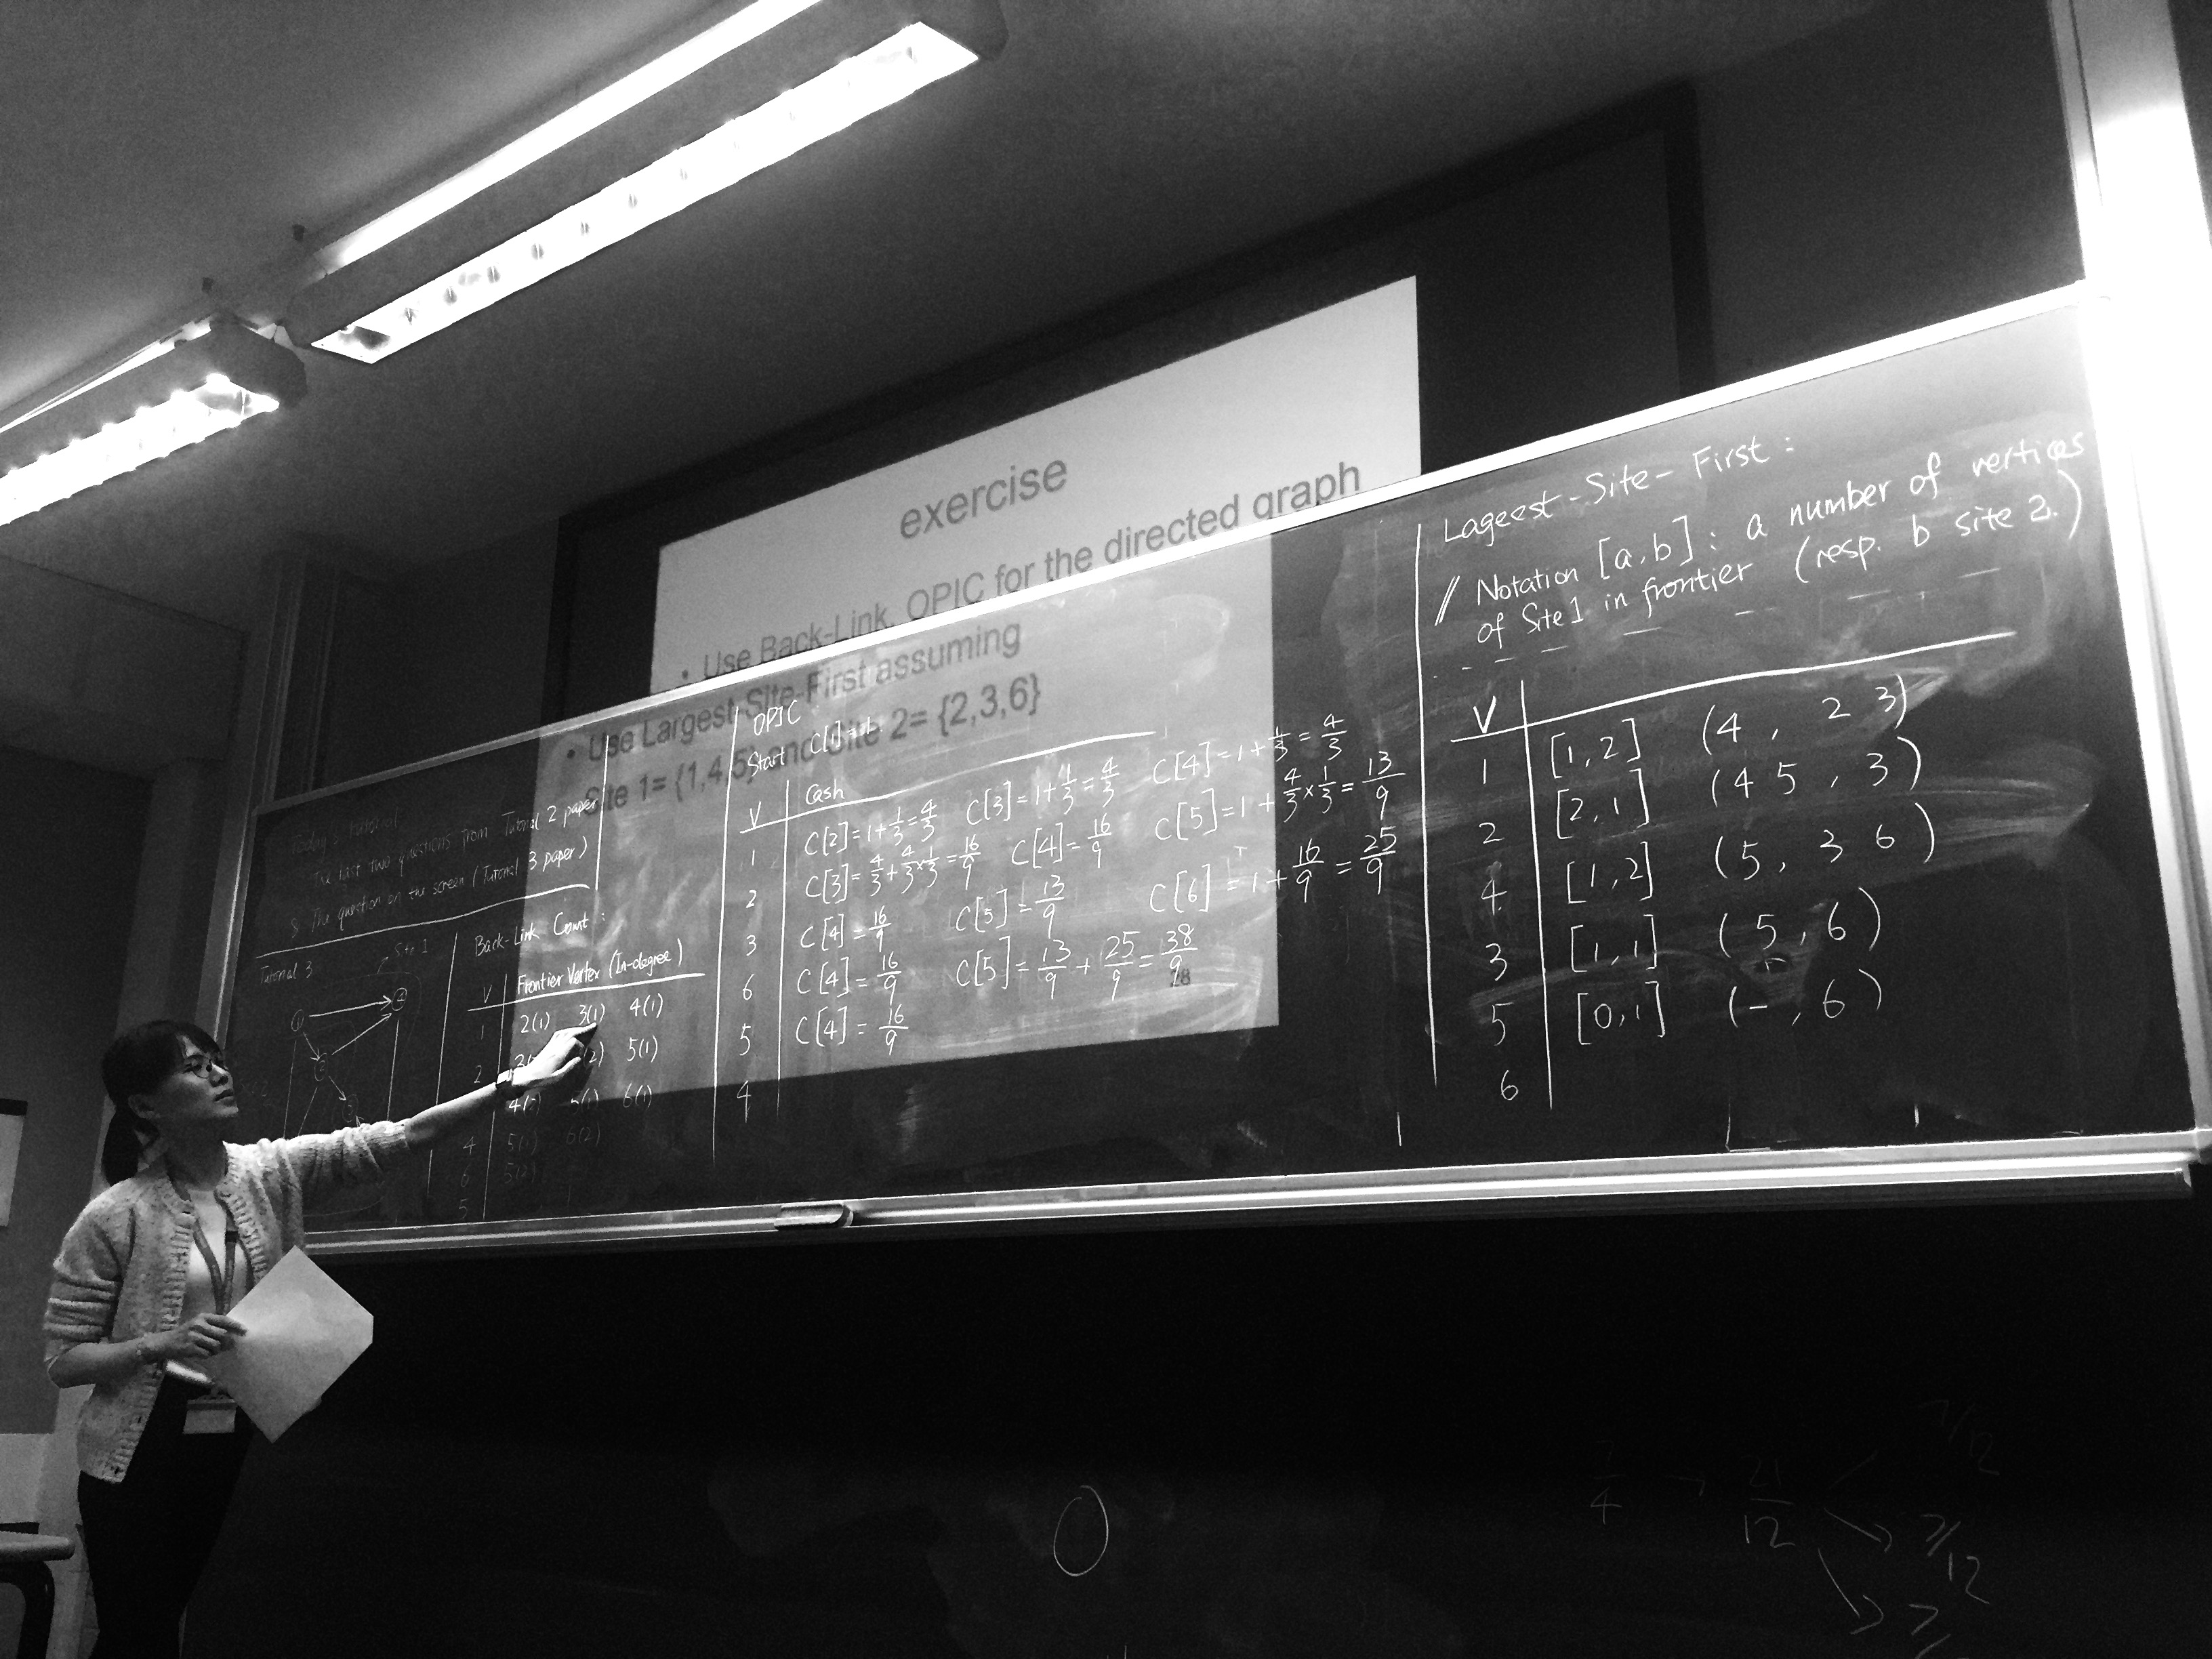 exercise
• Use Back-Link, OPIC for the directed graph
• Use Largest-Site-First assuming
Site 1= {1,4,5} and Site 2= {2,3,6}
18
Today's tutorial
The last two questions from Tutorial 2 paper
The question on the screen (Tutorial 3 paper)
Tutorial 3
Site 1
Back-Link Count:
V Frontier Vertex (In-degree)
1 2(1) 3(1) 4(1)
2 5(1)
6(1)
4 5(1) 6(2)
6 5(2)
5
OPIC
Start C[1]
V Cash
1 C[2]=1+1/3=4/3 C[3]=1+1/3=4/3 C[4]=1+1/3=4/3
2 C[3]=4/3+4/3×1/3=16/9 C[4]=16/9 C[5]=1+4/3×1/3=13/9
3 C[4]=16/9 C[5]=13/9 C[6]=1+16/9=25/9
6 C[4]=16/9 C[5]=13/9+25/9=38/9
5 C[4]=16/9
4
Lageest-Site-First:
// Notation [a,b]: a number of vertices
of Site1 in frontier (resp. b site 2.)
V
1 [1,2] (4, 2 3)
2 [2,1] (4 5, 3)
4 [1,2] (5, 3 6)
3 [1,1] (5, 6)
5 [0,1] (-, 6)
6
21/12
7/12
7/12